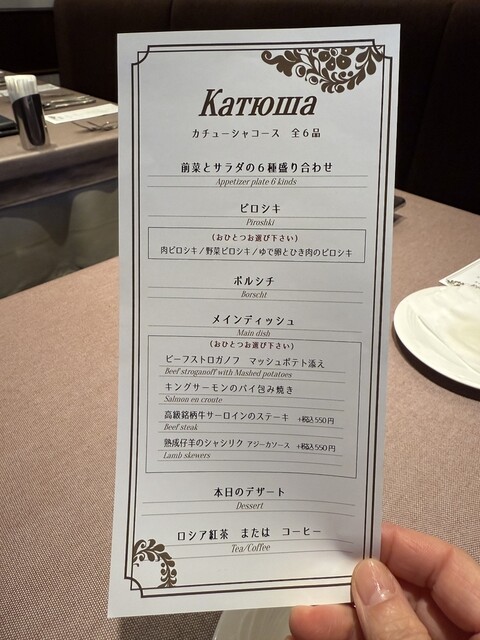 Катюша
カチューシャコース 全6品
前菜とサラダの6種盛り合わせ
Appetizer plate 6 kinds
ピロシキ
Piroshki
(おひとつお選び下さい)
肉ピロシキ/野菜ピロシキ/ゆで卵とひき肉のピロシキ
ボルシチ
Borscht
メインディッシュ
Main dish
(おひとつお選び下さい)
ビーフストロガノフ マッシュポテト添え
Beef stroganoff with Mashed potatoes
キングサーモンのパイ包み焼き
Salmon en croute
高級銘柄牛サーロインのステーキ +税込550円
Beef steak
熟成仔羊のシャシリク アジーカソース +税込550円
Lamb skewers
本日のデザート
Dessert
ロシア紅茶 または コーヒー
Tea/Coffee